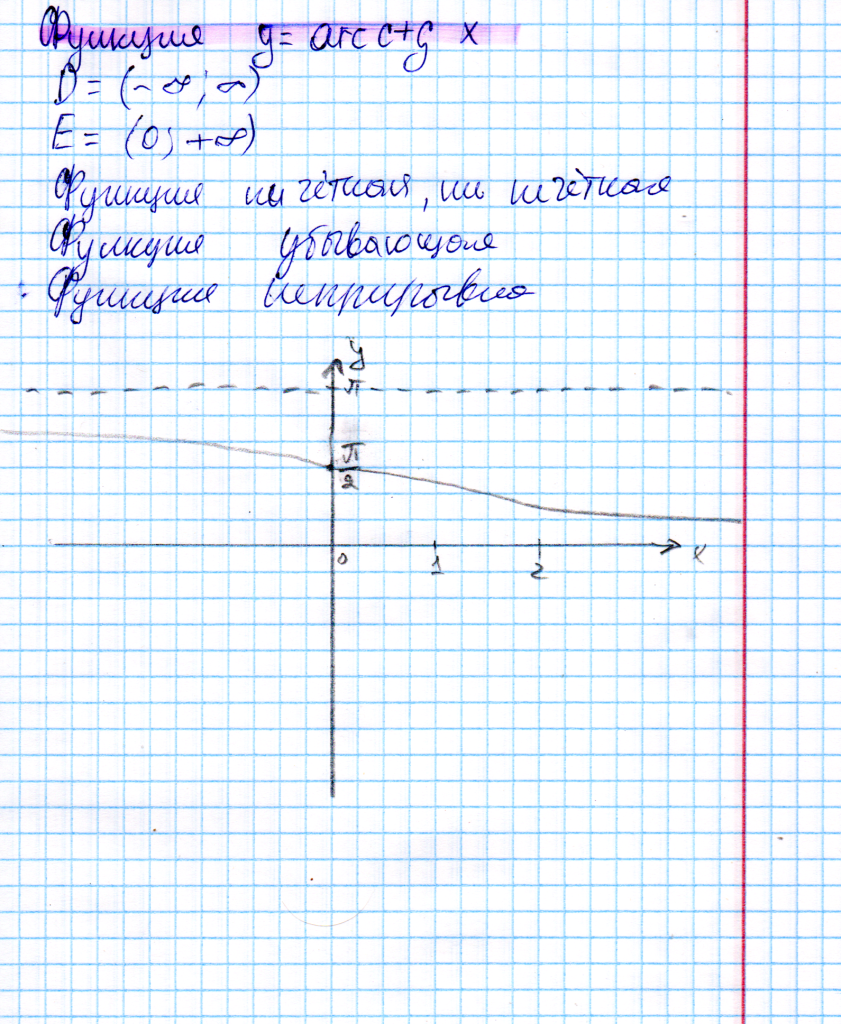 Функция y = arcctg x
D = (-∞; ∞)
E = (0; +∞)
Функция ни чётная, ни нечётная
Функция убывающая
Функция непрерывна
y
π
π
2
0 1 2 x